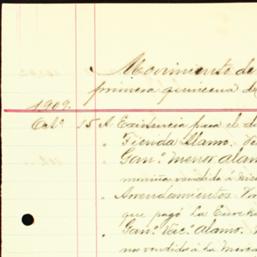 Movimiento de
primera quincena de
1909.
Octe. 15 A Existencia para el d
" Tienda Alamo. Ve
" Gano. Menor Alam
vendida á
" Arrendamientos. Va
que pagó la Eureka
" Gano. Vac. Alamo.
no vendido á la Merca